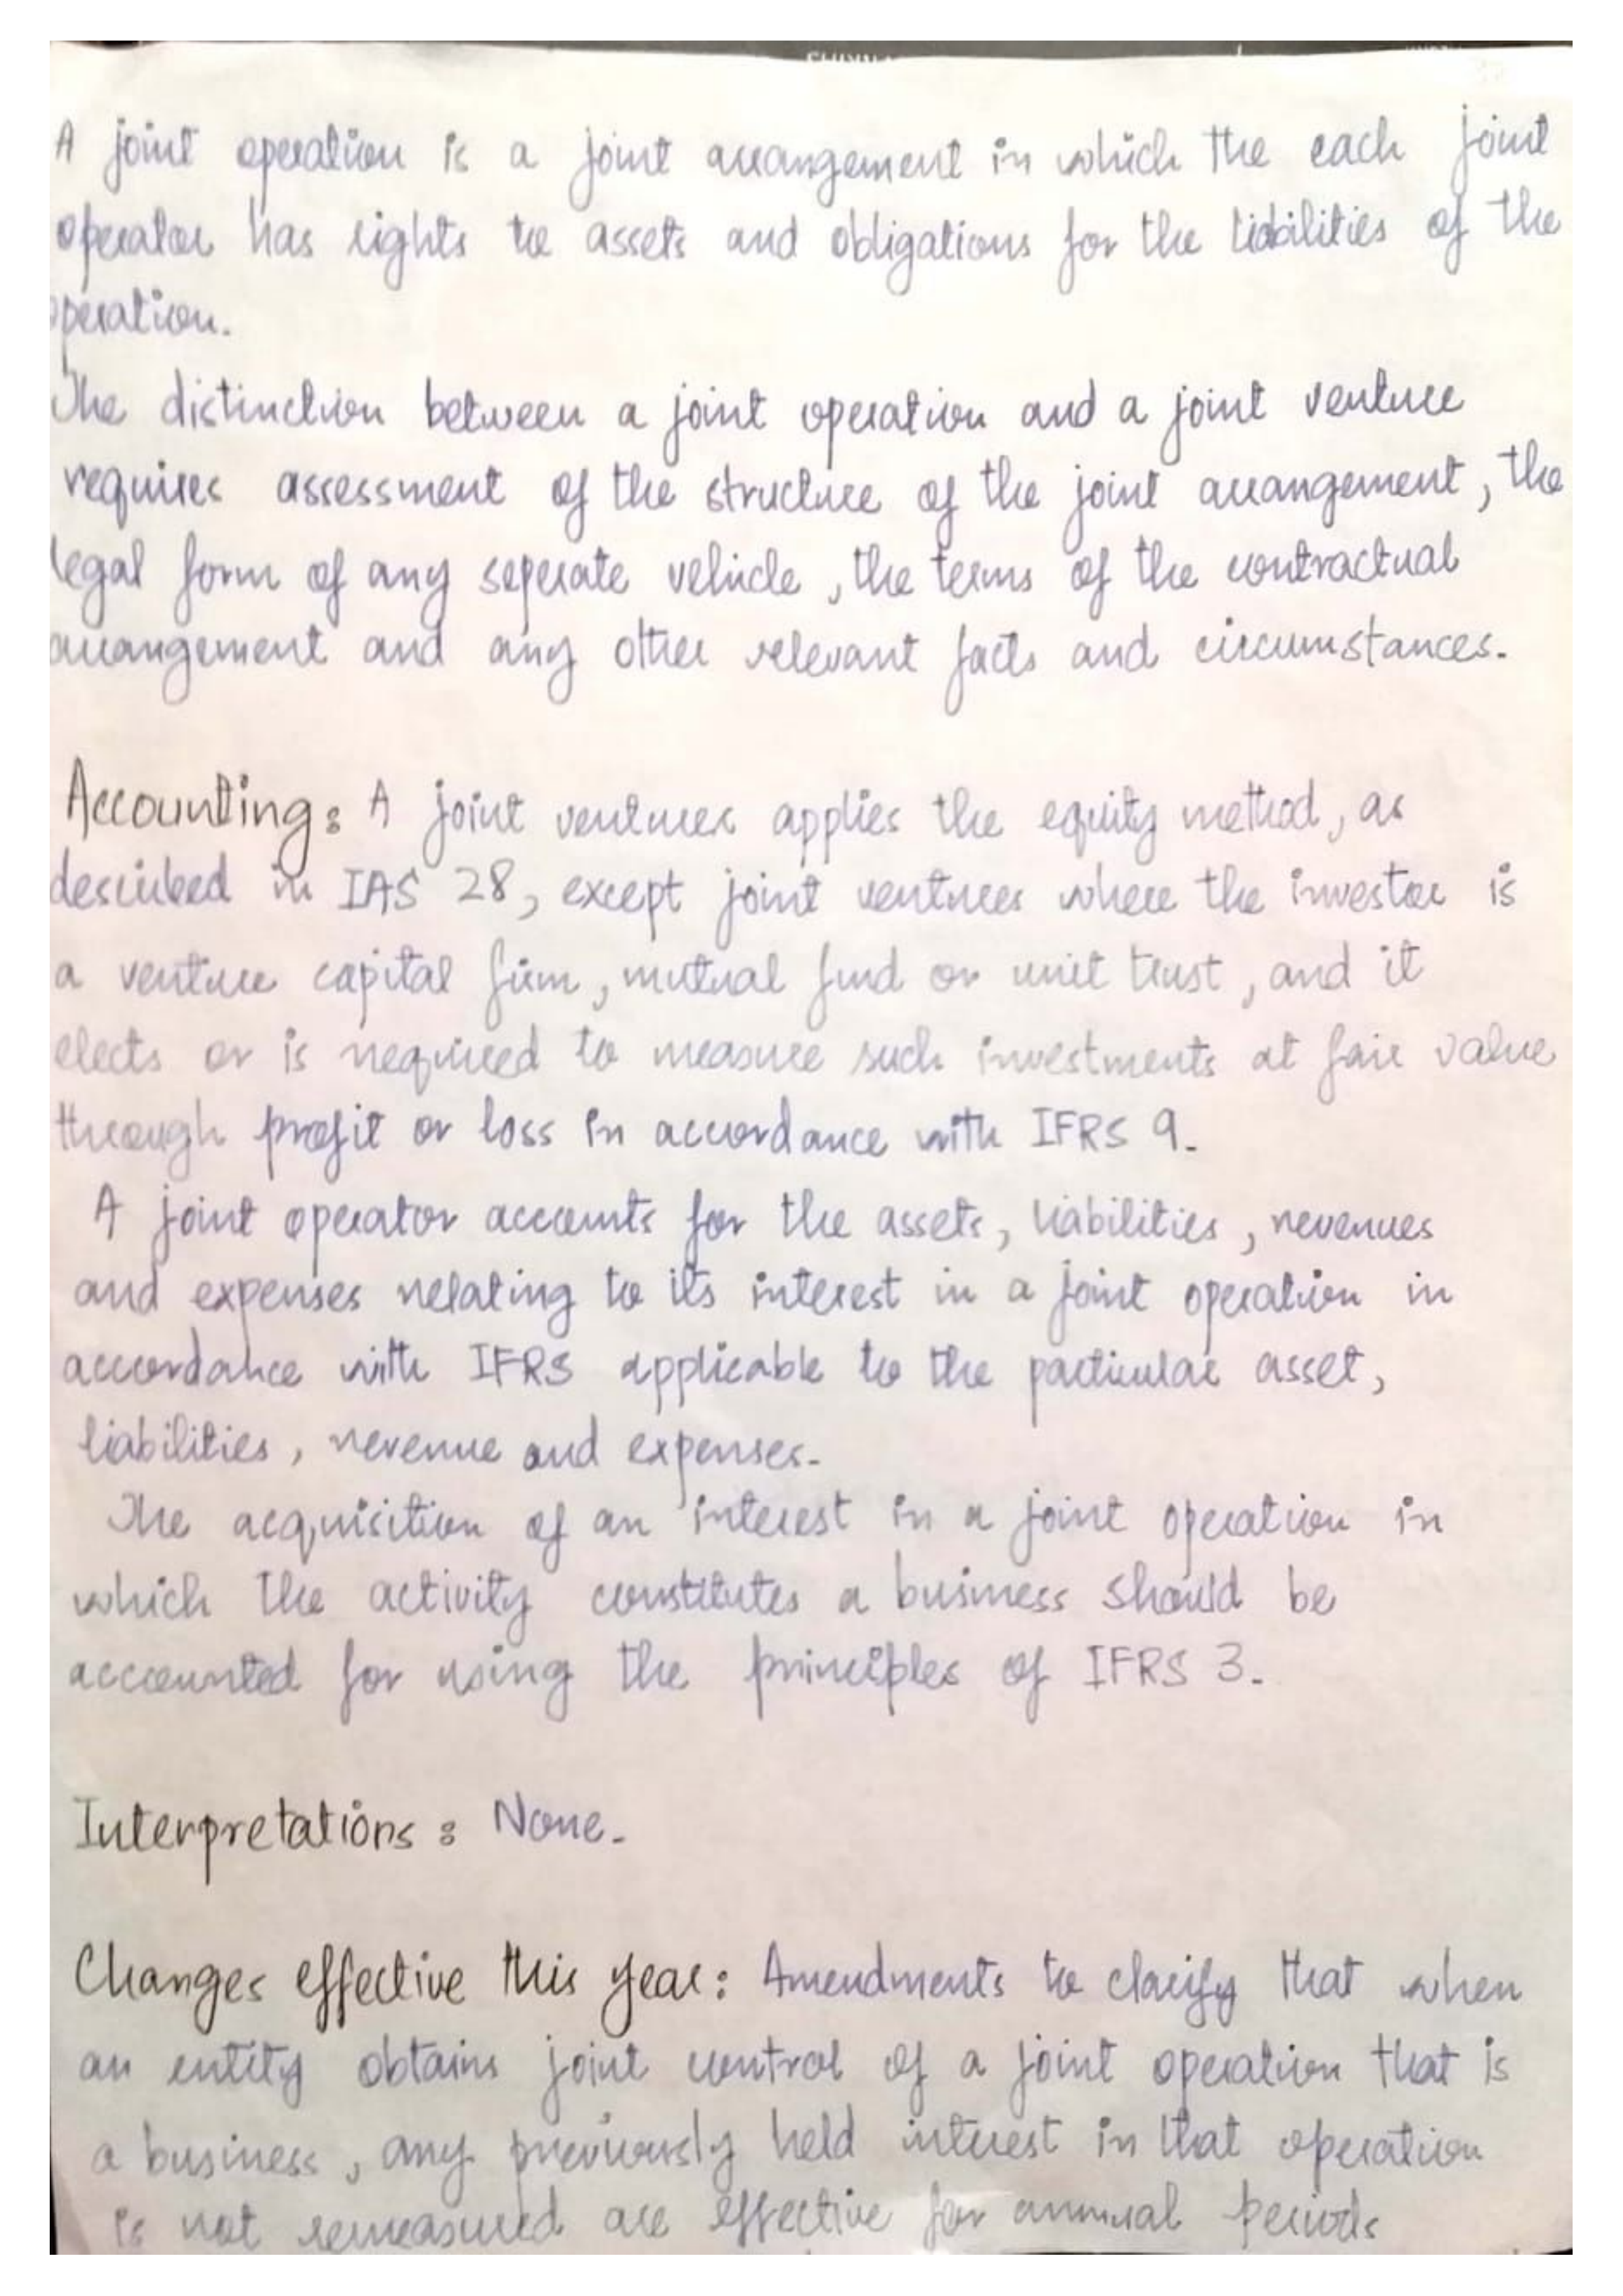 A joint operation is a joint arrangement in which the each joint
operator has rights to assets and obligations for the liabilities of the
operation.
The distinction between a joint operation and a joint venture
requires assessment of the structure of the joint arrangement, the
legal form of any seperate vehicle, the terms of the contractual
arrangement and any other relevant facts and circumstances.
Accounting: A joint venturer applies the equity method, as
described in IAS 28, except joint ventures where the investor is
a venture capital firm, mutual fund or unit trust, and it
elects or is required to measure such investments at fair value
through profit or loss in accordance with IFRS 9.
A joint operator accounts for the assets, liabilities, revenues
and expenses relating to its interest in a joint operation in
accordance with IFRS applicable to the particular asset,
liabilities, revenue and expenses.
The acquisition of an interest in a joint operation in
which the activity constitutes a business should be
accounted for using the principles of IFRS 3.
Interpretations: None.
Changes effective this year: Amendments to clarify that when
an entity obtains joint control of a joint operation that is
a business, any previously held interest in that operation
is not remeasured are effective for annual periods